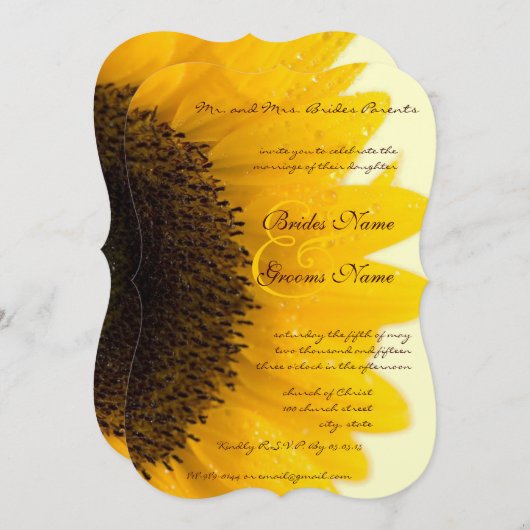 Mr. and Mrs. Brides Parents
invite you to celebrate the
marriage of their daughter
Brides Name
&
Grooms Name
saturday the fifth of may
two thousand and fifteen
three o'clock in the afternoon
church of Christ
100 church street
city, state
Kindly R.S.V.P. By 05.05.15
or email@gmail.com